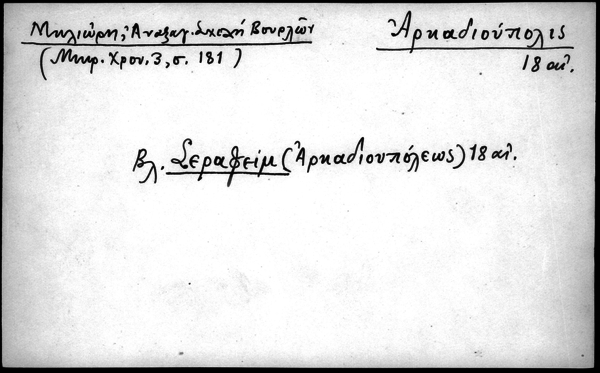 Μηλιώρη, Ἀναξαγ. Σχολή Βουρλῶν
(Μικρ. Χρον. 3, σ. 181)
Ἀρκαδιούπολις
18 αἰ.
Βλ. Σεραφείμ (Ἀρκαδιουπόλεως) 18 αἰ.